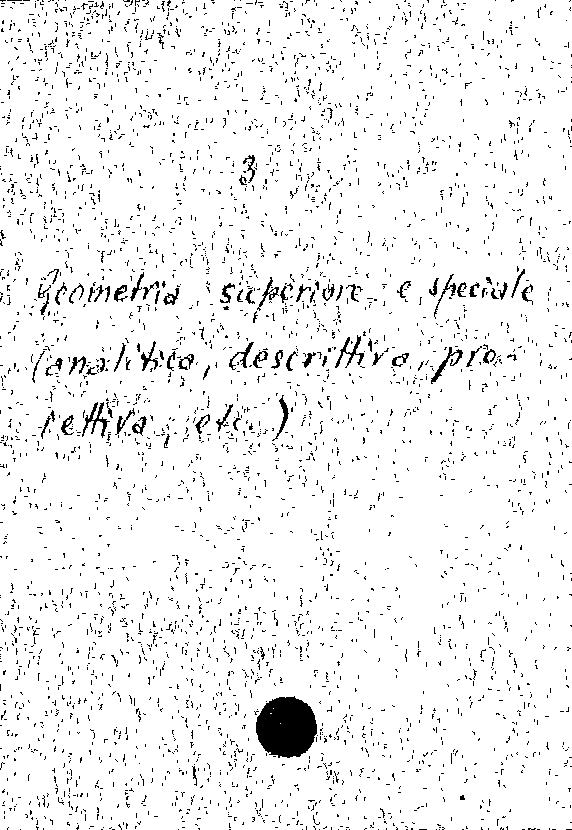 3
Geometria superiore e speciale
(analitica, descrittiva, pro-
iettiva, etc.)